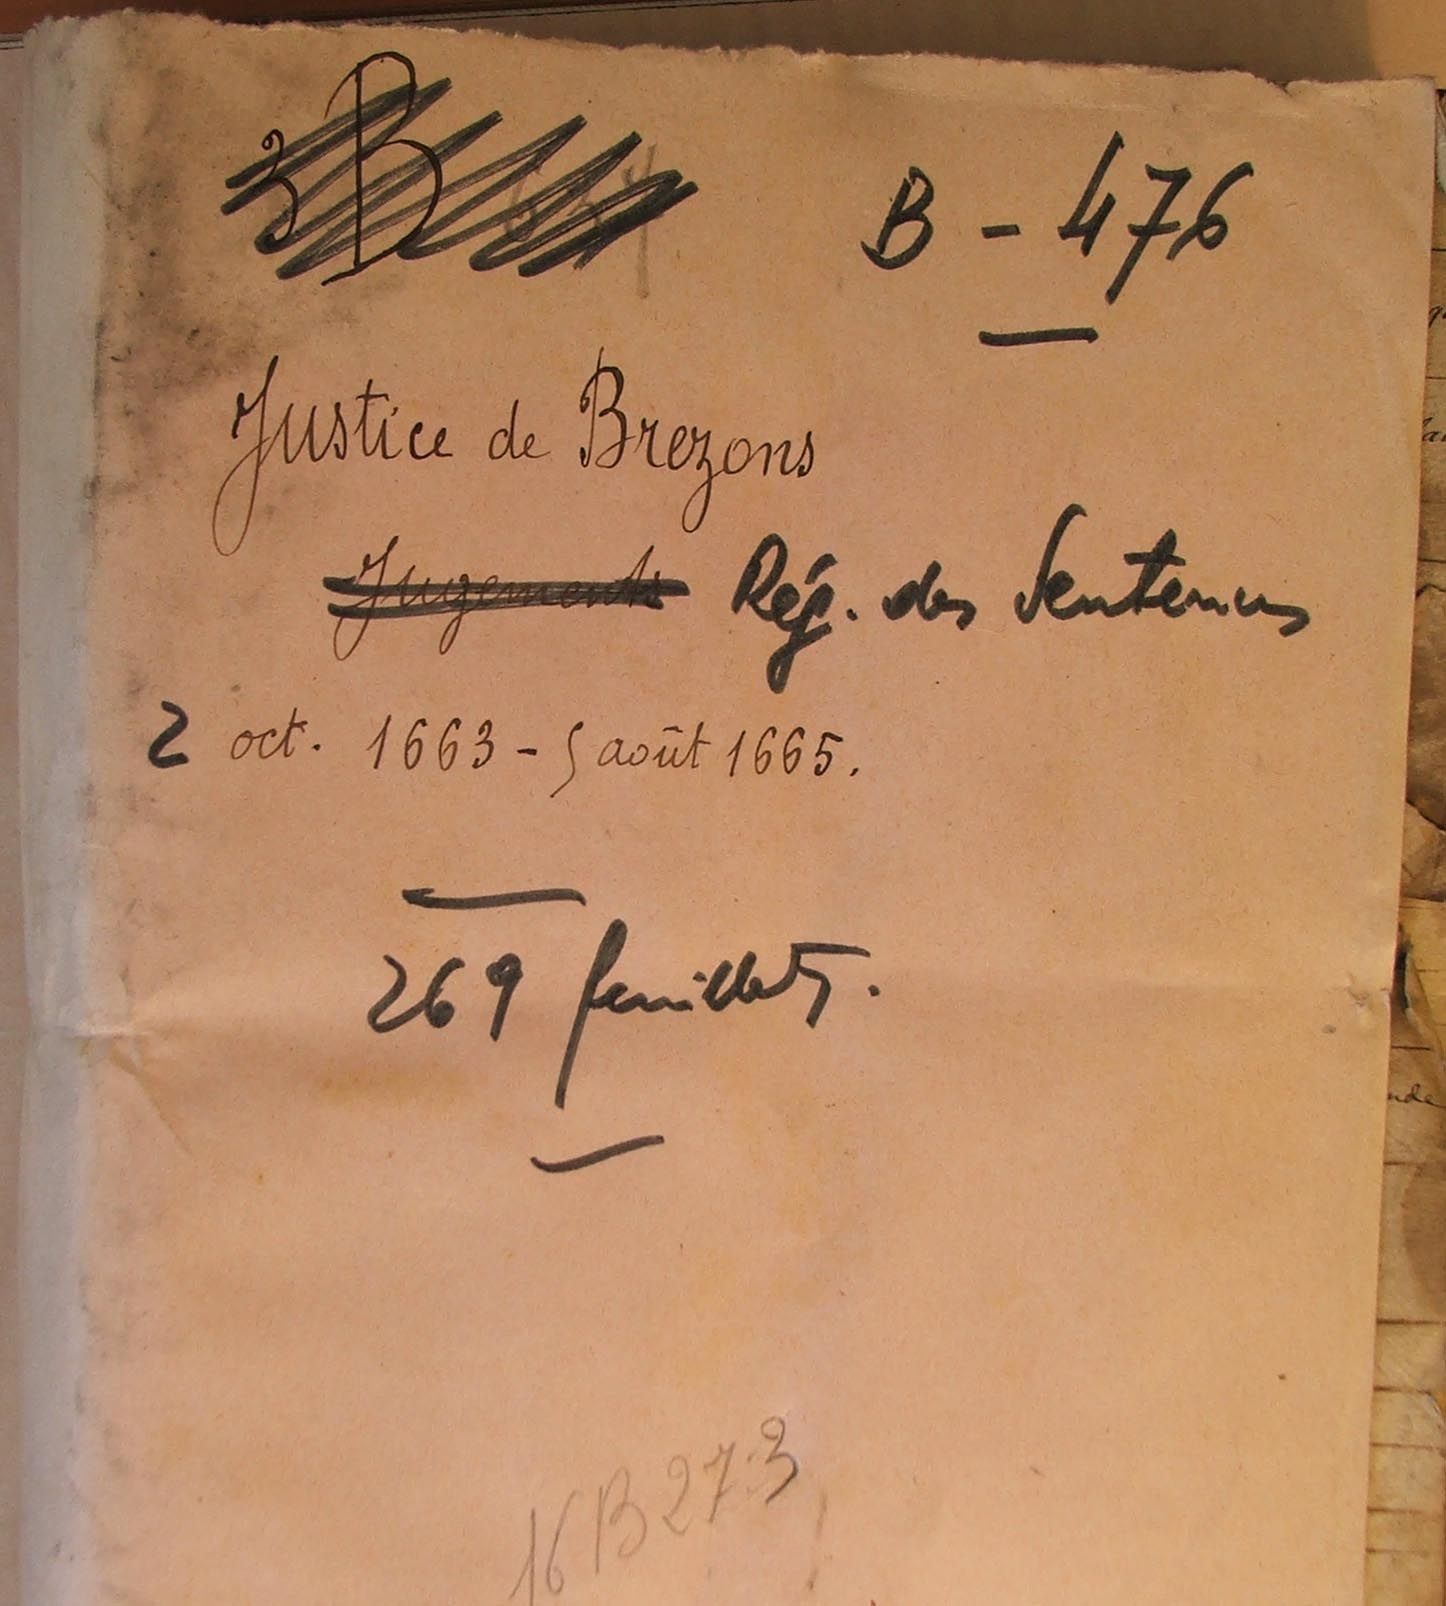 3 B B - 476
Justice de Brezons
Jugements Rég. des Sentences
2 oct. 1663 - 5 août 1665.
269 feuillets.
16 B 27.3